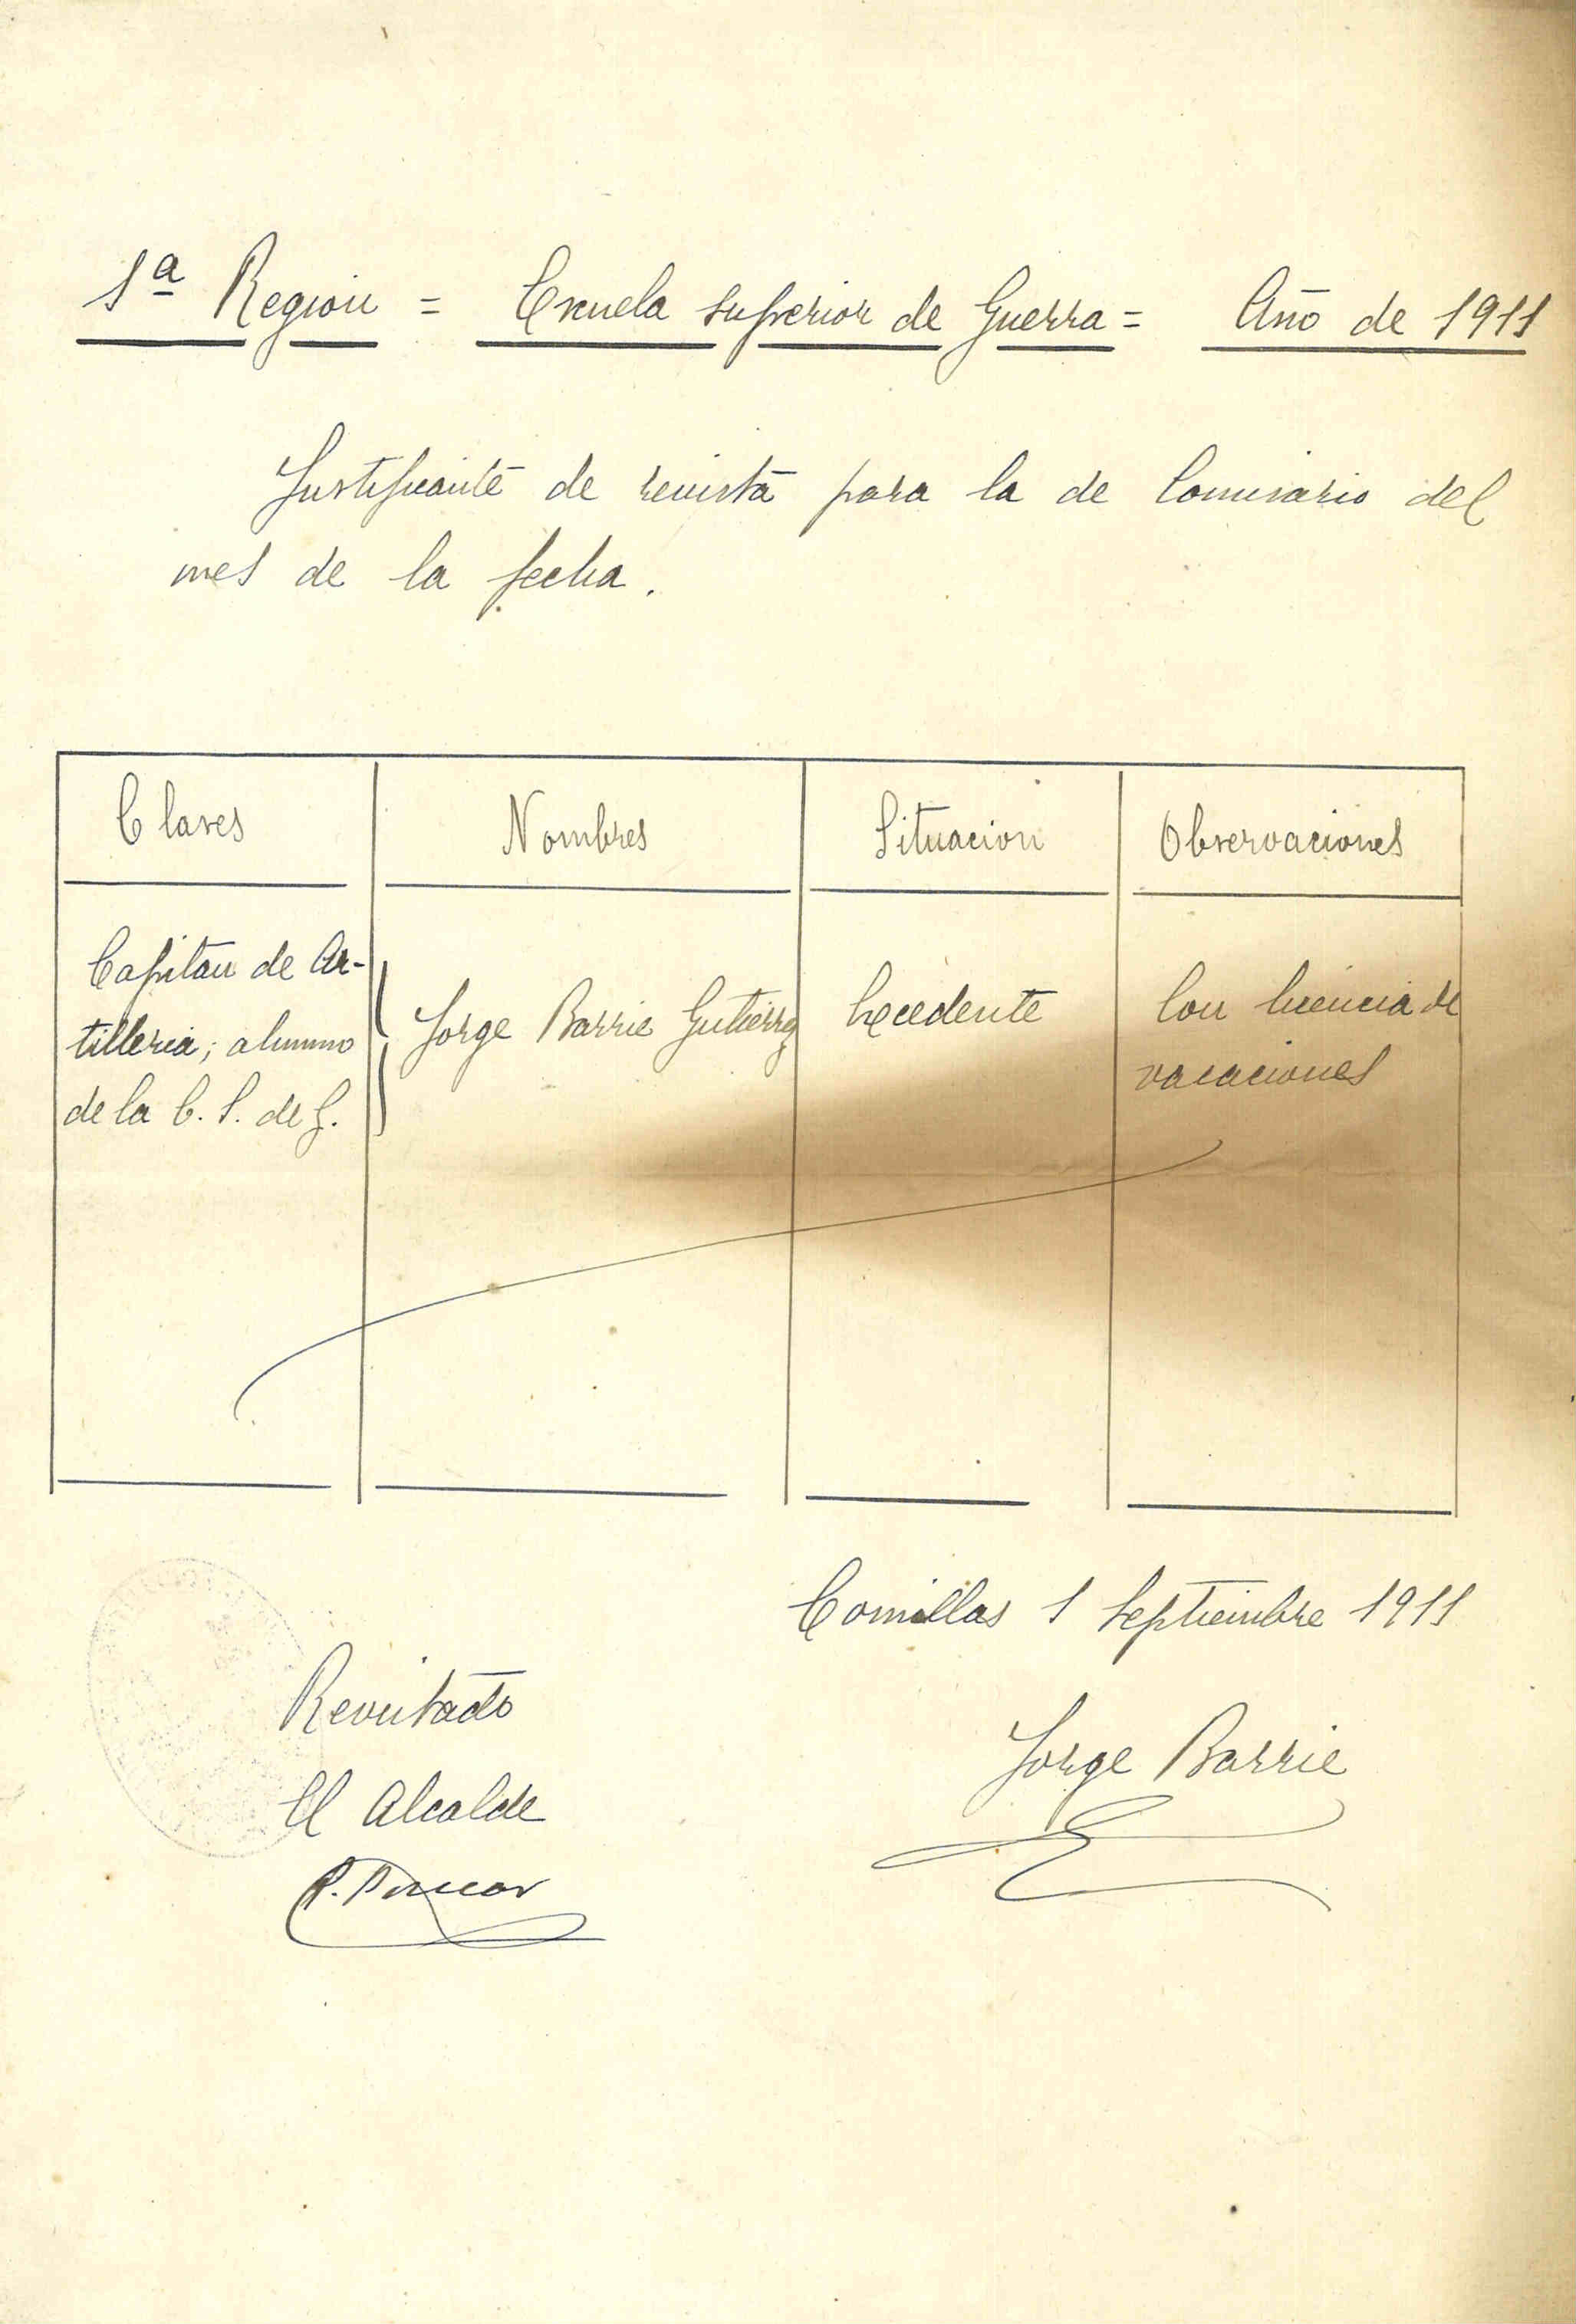 1ª Region = Escuela Superior de Guerra = Año de 1911
Justificante de revista para la de Comisario del
mes de la fecha.
Clases Nombres Situacion Observaciones
Capitan de Ar-
tilleria; alumno
de la E. S. de G.
Jorge Barrie Gutierrez
Excedente
Con licencia de
vacaciones
Comillas 1 Septiembre 1911
Revistado
El Alcalde
Jorge Barrie